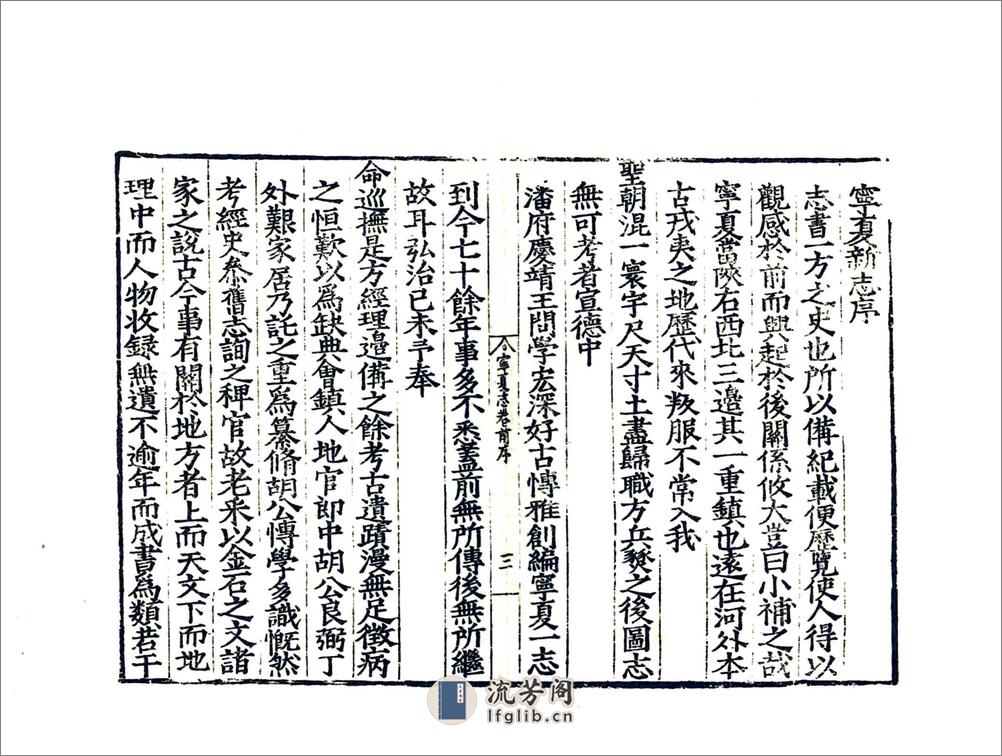 寧夏新志序
志書一方之史也所以備紀載便歷覽使人得以
觀感於前而興起於後關係攸大豈曰小補之哉
寧夏當陝右西北三邊其一重鎮也遠在河外本
古戎夷之地歷代來叛服不常入我
聖朝混一寰宇尺天寸土盡歸職方兵燹之後圖志
無可考者宣德中
潘府慶靖王問學宏深好古博雅創編寧夏一志
寧夏志卷前序
三
到今七十餘年事多不悉蓋前無所傳後無所繼
故耳弘治己未予奉
命巡撫是方經理邊備之餘考古遺蹟漫無足徵病
之恒歎以為缺典會鎮人地官郎中胡公良弼丁
外艱家居乃託之重為纂脩胡公博學多識慨然
考經史叅舊志詢之稗官故老釆以金石之文諸
家之說古今事有關於地方者上而天文下而地
理中而人物收録無遺不逾年而成書為類若干
流芳阁
lfglib.cn